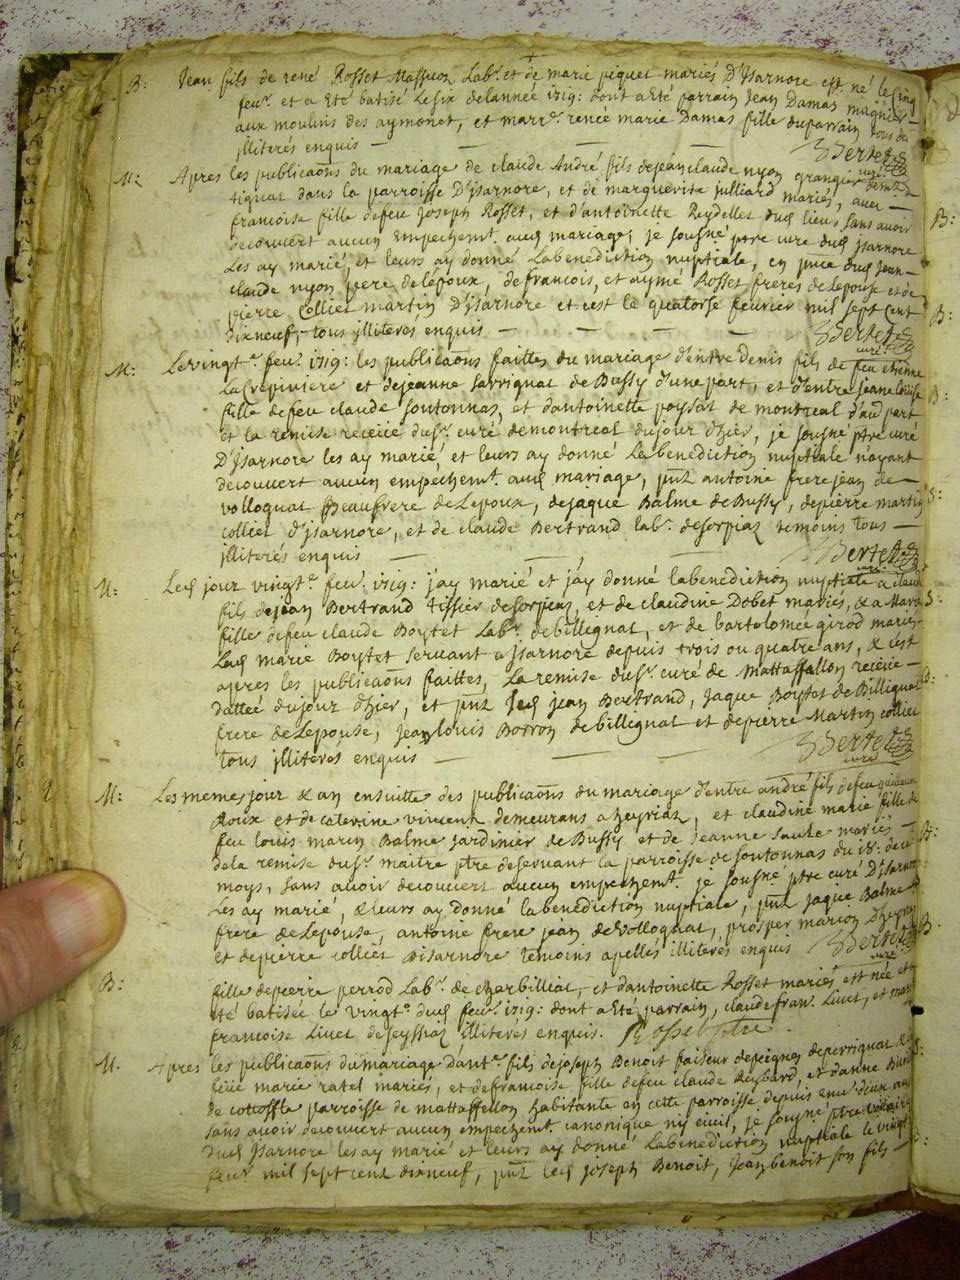 B: Jean fils de rené Rosset Massuoz Labr. et de marie piquet mariés D'Jsarnore est né le Cinq
feur. et a Eté batisé Lesix delannée 1719: dont a Eté parrain Jean Damas magnier
aux moulins des aymonet, et marre. renée marie Damas fille duparrain tous deux
jlliterés enquis — Bertet curé
M: Apres les publicaons du mariage de claude André fils dejean claude nyon grangier
tiquat dans la parroisse D'jsarnore, et de marguerite julliard mariés, avec —
francoise fille defeu Joseph Rosset, et d'antoinette Reydellet dud lieu, sans avoir
decouvert aucun Empechemt. aud mariage, je sousné ptre curé dud jsarnore
Les ay marié, et leurs ay donné Labenediction nuptiale, en pnce dud Jean—
claude nyon pere delépoux, defrancois, et aymé Rosset freres de Lepouse et de
pierre Colliet martin D'jsarnore et cest le quatorse fevrier mil sept cent
dixneuf, tous jlliterés enquis — Bertet curé
M: Levingte. feur. 1719: les publicaons faittes du mariage d'entre denis fils de feu etienne
Lacrepiniere et dejeanne Sarvignat de Bussy d'une part, et d'entre jeane Louise
fille defeu claude soutonnas, et d'antoinette poyssat de montreal d'aud part
et la remise receüe dusr. curé demontreal dujour d'hier, je sousné ptre curé
D'jsarnore les ay marié, et leurs ay donné La benediction nuptiale nayant
decouvert aucun empechemt. aud mariage, pnt antoine frere jean de —
volloguat Beaufrere de Lepoux, dejaque Balme de Bussy, depierre martin
colliet d'jsarnore, et de claude Bertrand labr. desorpiaz temoins tous —
jlliterés enquis — Bertet curé
M: Led jour vingte. feur. 1719: j'ay marié et j'ay donné labenediction nuptiale a claude
fils dejean Bertrand tissier desorpiaz, et de claudine Dobet mariés, & a Marie
fille defeu claude Boytet Labr. debillegnat, et de bartolomée girod mariés
Lad marie Boytet servant a jsarnore depuis trois ou quatre ans, & c'est
apres les publicaons faittes, La remise dusr. curé de Mattaffallon receüe —
dattée dujour d'hier, et pnt led jean Bertrand, Jaque Boytet de Billignat
frere de Lepouse, jean louis Borron debillegnat et depierre Martin colliet
tous jlliterés enquis — Bertet curé
M: Les memes jour & an ensuitte des publicaons du mariage d'entre andré fils defeu
Roux et de caterine vincent demeurans a heyriaz, et claudine marie fille de
feu louis marin Balme jardinier de Bussy et de Jeanne saule mariés —
dela remise dusr. maitre ptre deservant la parroisse de soutonnas du 18: de ce
moys, sans avoir decouvert aucun empechemt. je sousné ptre curé D'jsarnore
Les ay marié, & leurs ay donné labenediction nuptiale, pnt jaque Balme
frere de Lepouse, antoine frere jean devolloguat, prosper marion d'heyriaz
et depierre colliet D'isarnore temoins apellés jlliterés enquis Bertet curé
B: fille depierre perrod Labr. de charbilliat, et d'antoinette Rosset mariés est née et a
eté batisée le vingte. dud feur. 1719: dont a Eté parrain, claude fran. Livet, et marre.
francoise Livet de seyssiaz jlliteres enquis. Rosset ptre
M. Apres les publicaons dumariage d'ante. fils dejoseph Benoit faiseur depeignes deperrignat &
feüe marie ratel mariés, et defrancoise fille defeu claude Reybard, et d'anne
de coiroffle parroisse de mattaffellon habitante en cette parroisse depuis deux ans
sans avoir decouvert aucun empechemt. canonique ny civil, je sousné ptre vicaire
dud Jsarnore les ay marié et leurs ay donné Labenediction nuptiale le vingt
feur. mil sept cent dixneuf, pnt led joseph Benoit, Jean benoit son fils —